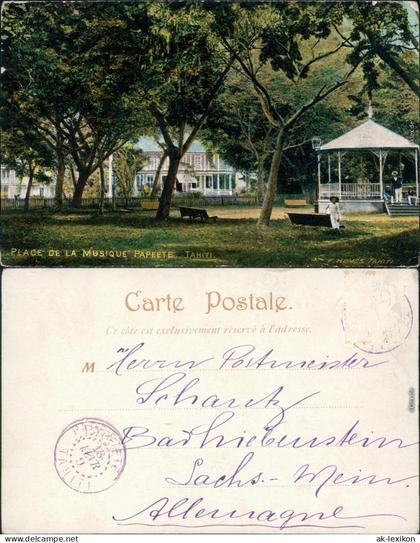 PLACE DE LA MUSIQUE PAPEETE. TAHITI
F. HOMES TAHITI.
Carte Postale.
Ce côté est exclusivement réservé à l'adresse.
M Herrn Postmeister
Schantz
Bad Liebenstein
Sachs-Mein.
Allemagne
PAPEETE
TAITI
www.ak-ansichtskarten.de
© ak-lexikon